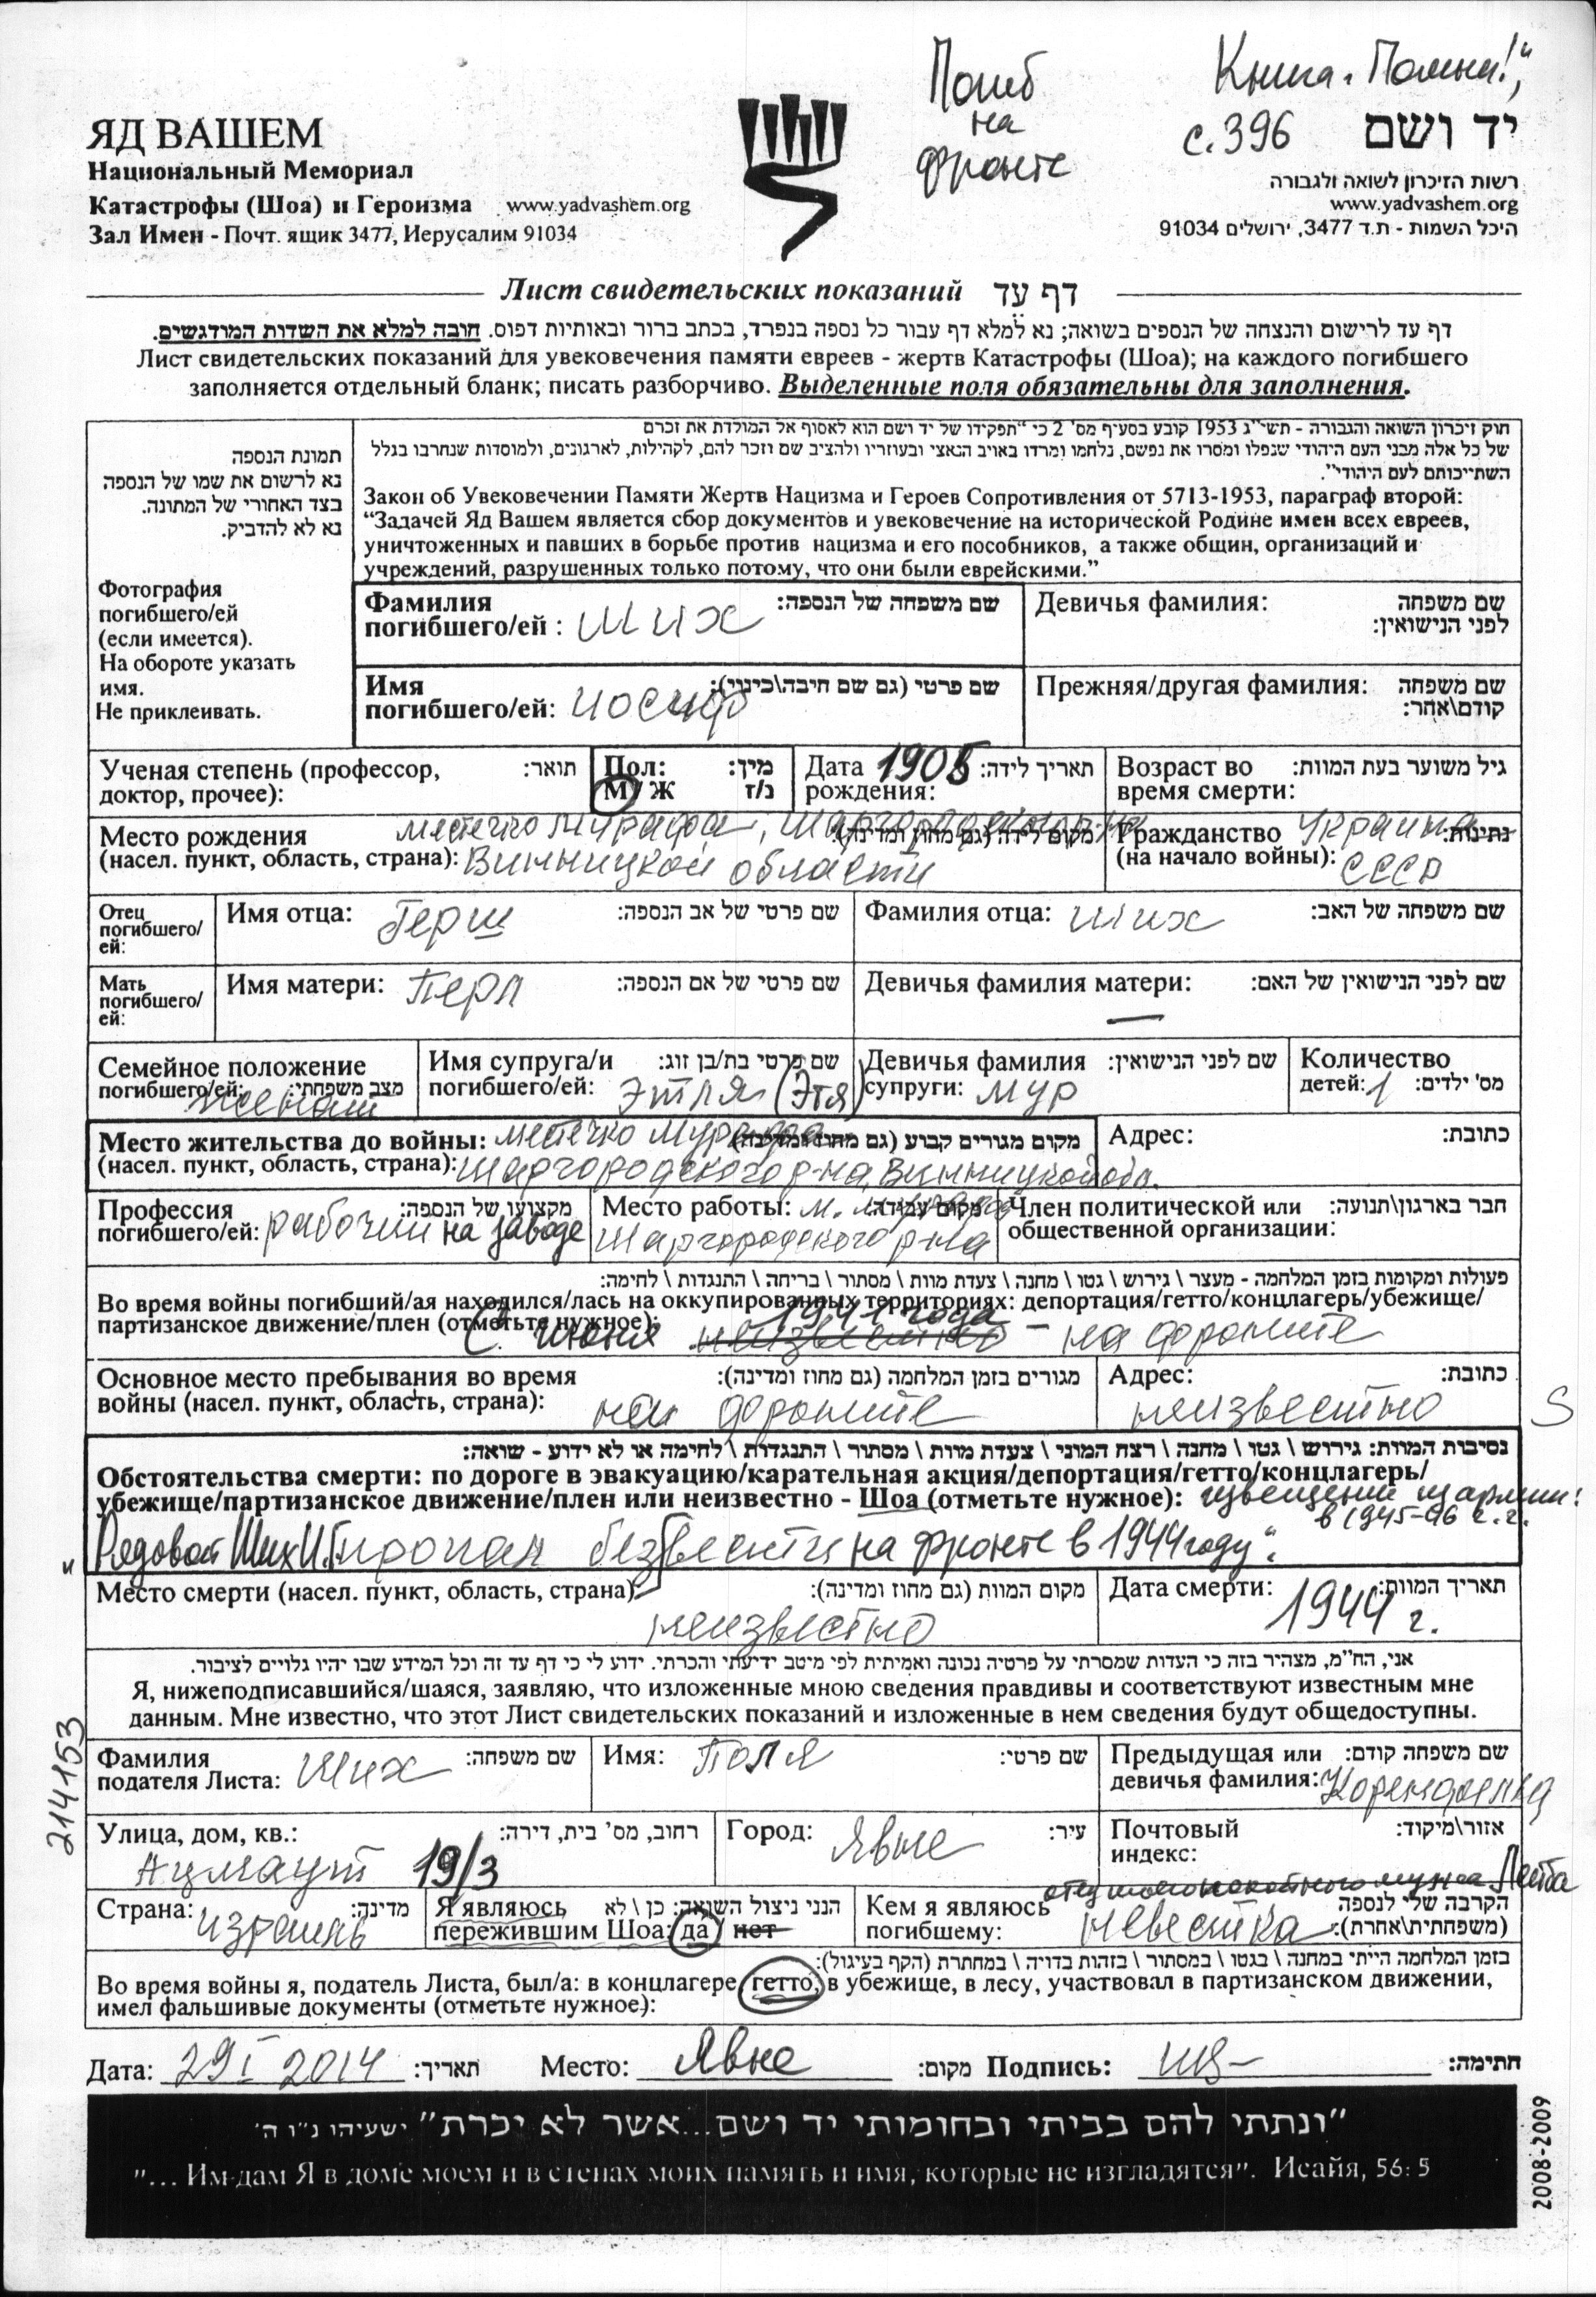 Погиб
на
фронте
Книга „Помни!“,
с. 396
ЯД ВАШЕМ
Национальный Мемориал
Катастрофы (Шоа) и Героизма www.yadvashem.org
Зал Имен - Почт. ящик 3477, Иерусалим 91034
יד ושם
רשות הזיכרון לשואה ולגבורה
www.yadvashem.org
היכל השמות - ת.ד 3477, ירושלים 91034
Лист свидетельских показаний דף עד
דף עד לרישום והנצחה של הנספים בשואה; נא למלא דף עבור כל נספה בנפרד, בכתב ברור ובאותיות דפוס. חובה למלא את השדות המודגשים.
Лист свидетельских показаний для увековечения памяти евреев - жертв Катастрофы (Шоа); на каждого погибшего
заполняется отдельный бланк; писать разборчиво. Выделенные поля обязательны для заполнения.
תמונת הנספה
נא לרשום את שמו של הנספה
בצד האחורי של המתונה.
נא לא להדביק.
Фотография
погибшего/ей
(если имеется).
На обороте указать
имя.
Не приклеивать.
חוק זיכרון השואה והגבורה - תשי"ג 1953 קובע בסעיף מס' 2 כי "תפקידו של יד ושם הוא לאסוף אל המולדת את זכרם
של כל אלה מבני העם היהודי שנפלו ומסרו את נפשם, נלחמו ומרדו באויב הנאצי ובעוזריו ולהציב שם וזכר להם, לקהילות, לארגונים, ולמוסדות שנחרבו בגלל
השתייכותם לעם היהודי".
Закон об Увековечении Памяти Жертв Нацизма и Героев Сопротивления от 5713-1953, параграф второй:
“Задачей Яд Вашем является сбор документов и увековечение на исторической Родине имен всех евреев,
уничтоженных и павших в борьбе против нацизма и его пособников, а также общин, организаций и
учреждений, разрушенных только потому, что они были еврейскими.”
Фамилия שם משפחה של הנספה:
погибшего/ей : Ших
Девичья фамилия: שם משפחה
לפני הנישואין:
Имя שם פרטי (גם שם חיבה\כינוי):
погибшего/ей: Иосиф
Прежняя/другая фамилия: שם משפחה
קודם\אחר:
Ученая степень (профессор, תואר:
доктор, прочее):
Пол: מין:
М / Ж נ/ז
Дата 1905 תאריך לידה:
рождения:
Возраст во גיל משוער בעת המוות:
время смерти:
Место рождения местечко Мурафа, Шаргородского р-на
(насел. пункт, область, страна): מקום לידה (גם מחוז ומדינה):
Винницкой области
Гражданство Украина נתינות:
(на начало войны): СССР
Отец
погибшего/
ей:
Имя отца: Герш שם פרטי של אב הנספה:
Фамилия отца: Ших שם משפחה של האב:
Мать
погибшего/
ей:
Имя матери: Перл שם פרטי של אם הנספה:
Девичья фамилия матери: — שם לפני הנישואין של האם:
Семейное положение
погибшего/ей: מצב משפחתי:
женат
Имя супруга/и שם פרטי בת/בן זוג:
погибшего/ей: Этля (Этя)
Девичья фамилия שם לפני הנישואין:
супруги: Мур
Количество
детей: 1 מס' ילדים:
Место жительства до войны: местечко Мурафа מקום מגורים קבוע (גם מחוז ומדינה)
(насел. пункт, область, страна): Шаргородского р-на, Винницкой обл.
Адрес: כתובת:
Профессия מקצועו של הנספה:
погибшего/ей: рабочий на заводе
Место работы: м. Мурафа מקום עבודה:
Шаргородского р-на
Член политической или חבר בארגון\תנועה:
общественной организации:
פעולות ומקומות בזמן המלחמה - מעצר \ גירוש \ גטו \ מחנה \ צעדת מוות \ מסתור \ בריחה \ התנגדות \ לחימה:
Во время войны погибший/ая находился/лась на оккупированных территориях: депортация/гетто/концлагерь/убежище/
партизанское движение/плен (отметьте нужное):
С июня 1941 года неизвестно – на фронте
Основное место пребывания во время מגורים בזמן המלחמה (גם מחוז ומדינה):
войны (насел. пункт, область, страна): на фронте
Адрес: כתובת:
неизвестно
S
נסיבות המוות: גירוש \ גטו \ מחנה \ רצח המוני \ צעדת מוות \ מסתור \ התנגדות \ לחימה או לא ידוע - שואה:
Обстоятельства смерти: по дороге в эвакуацию/карательная акция/депортация/гетто/концлагерь/
убежище/партизанское движение/плен или неизвестно - Шоа (отметьте нужное): извещении из армии:
в 1945-46 г.г.
„Рядовой Ших И.Г. пропал без вести на фронте в 1944 году“.
Место смерти (насел. пункт, область, страна): מקום המוות (גם מחוז ומדינה):
неизвестно
Дата смерти: תאריך המוות:
1944 г.
אני, הח"מ, מצהיר בזה כי העדות שמסרתי על פרטיה נכונה ואמיתית לפי מיטב ידיעתי והכרתי. ידוע לי כי דף עד זה וכל המידע שבו יהיו גלויים לציבור.
Я, нижеподписавшийся/шаяся, заявляю, что изложенные мною сведения правдивы и соответствуют известным мне
данным. Мне известно, что этот Лист свидетельских показаний и изложенные в нем сведения будут общедоступны.
214153
Фамилия שם משפחה:
подателя Листа: Ших
Имя: Поля שם פרטי:
Предыдущая или שם משפחה קודם:
девичья фамилия:
Улица, дом, кв.: רחוב, מס' בית, דירה:
Ацмаут 19/3
Город: Явне עיר:
Почтовый אזור\מיקוד:
индекс:
Страна: Израиль מדינה:
Я являюсь הנני ניצול השואה: כן \ לא
пережившим Шоа: да / нет
Кем я являюсь הקרבה שלי לנספה
погибшему: невестка (משפחתית\אחרת):
בזמן המלחמה הייתי במחנה \ בגטו \ במסתור \ בזהות בדויה \ במחתרת (הקף בעיגול):
Во время войны я, податель Листа, был/а: в концлагере, гетто, в убежище, в лесу, участвовал в партизанском движении,
имел фальшивые документы (отметьте нужное):
Дата: 29 I 2014 תאריך: Место: Явне מקום: Подпись: חתימה:
"ונתתי להם בביתי ובחומותי יד ושם...אשר לא יכרת" ישעיהו נ"ו ה'
"... Им дам Я в доме моем и в стенах моих память и имя, которые не изгладятся". Исайя, 56: 5
2008-2009